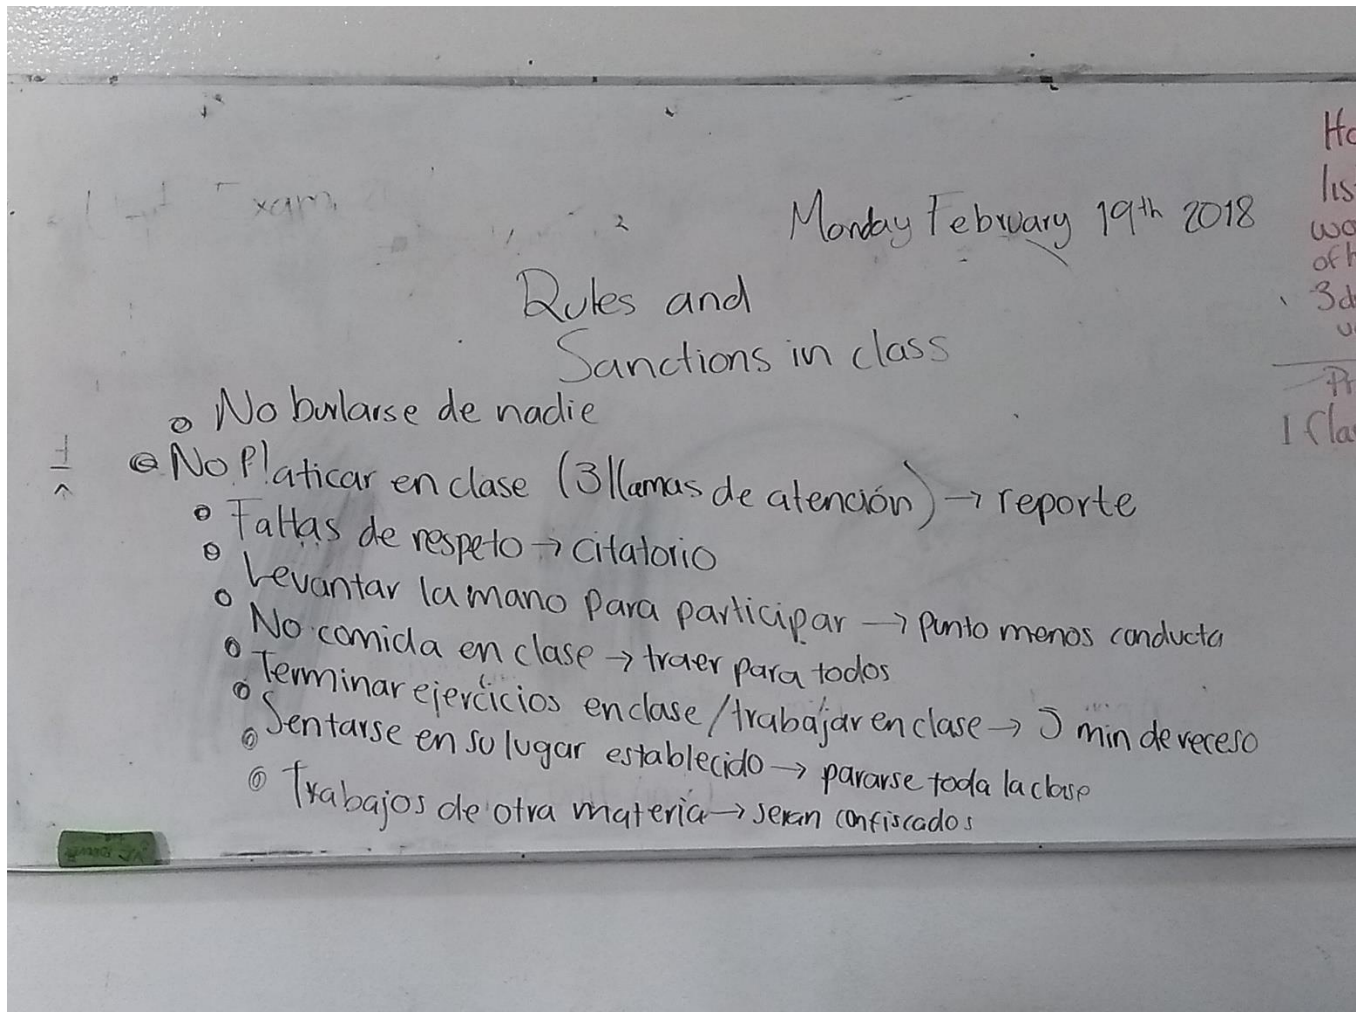 Monday February 19th 2018
Rules and
Sanctions in class
No burlarse de nadie
No Platicar en clase (3 llamas de atención) → reporte
Faltas de respeto → citatorio
Levantar la mano para participar → punto menos conducta
No comida en clase → traer para todos
Terminar ejercicios en clase / trabajar en clase → 5 min de receso
Sentarse en su lugar establecido → pararse toda la clase
Trabajos de otra materia → seran confiscados
Ho
lis
wo
of h
3d
Pr
1 Cla